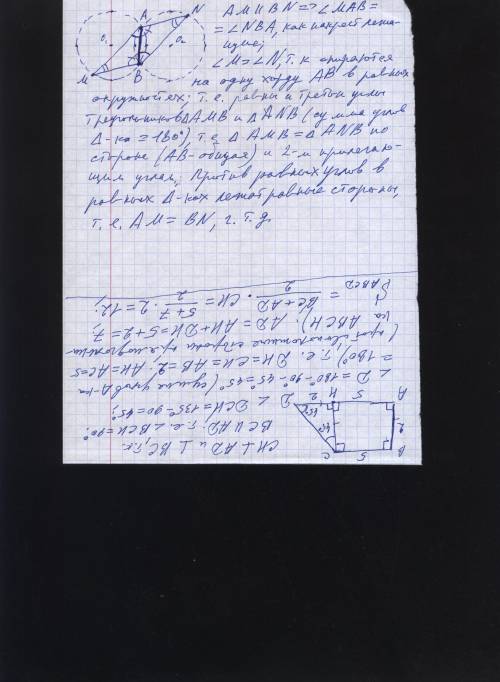 AM || BN => ∠MAB =
= ∠NBA, как накрест лежа-
щие;
∠M = ∠N, т. к опираются
на одну хорду AB в равных
окружностях; т.е. равны и третьи углы
треугольников ΔAMB и ΔANB (сумма углов
Δ-ка = 180°), т.е. ΔAMB = ΔANB по
стороне (AB-общая) и 2-м прилегаю-
щим углам; Против равных углов в
равных Δ-ках лежат равные стороны,
т. е. AM = BN, ч. т. д.
A
N
O₁
O₂
M
B
CH ⊥ AD и ⊥ BC, т.к.
BC || AD, т.е. ∠BCH = 90°
∠DCH = 135° - 90° = 45°;
∠D = 180 - 90 - 45° = 45° (сумма углов Δ-ка
= 180°) т.е. DH = CH = AB = 2; AH = BC = 5
(противоположные стороны прямоугольни-
ка ABCH). AD = AH + DH = 5 + 2 = 7;
S ABCD = (BC + AD)/2 · CH = (5 + 7)/2 · 2 = 12;
B
5
C
2
45°
45°
A
5
H
2
D